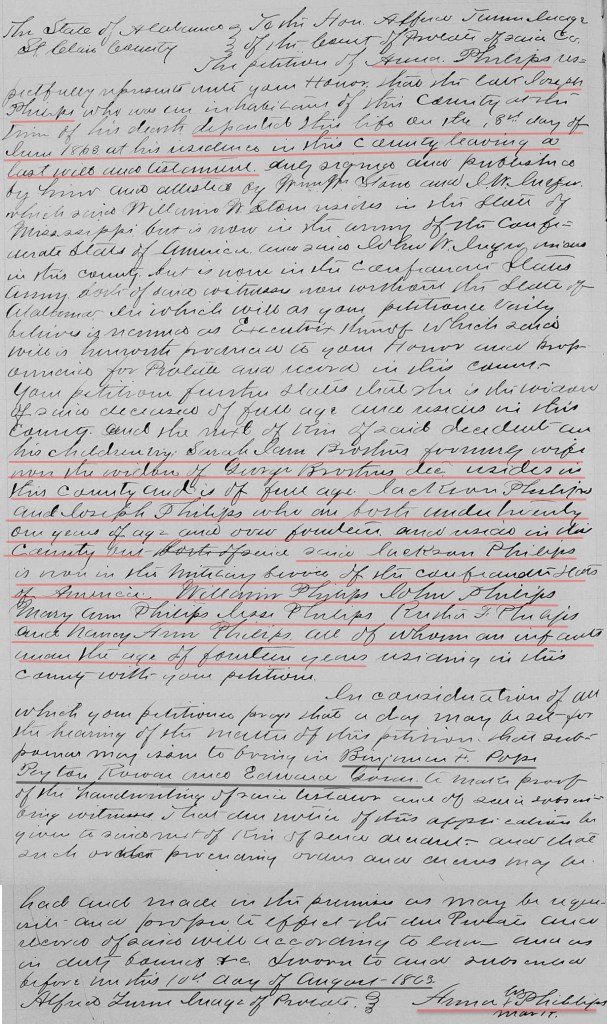 The State of Alabama } To the Hon. Alfred Turner Judge
St Clair County } of the Court of Probate of said Co.
The petition of Anna Philips res-
pectfully represents unto your Honor that the late Joseph
Philips who was an inhabitant of this County at the
time of his death departed this life on the 18th day of
June 1863 at his residence in this County leaving a
last will and testament, duly signed and published
by him and attested by Stone and J. W.
which said William W Stone resides in the State of
Mississippi but is now in the army of the Confe-
derate States of America and said John W. resides
in this county but is now in the Confederate States
Army both of said witnesses now without the State of
Alabama. In which will as your petitioner verily
believes is named as Executrix thereof which said
will is herewith produced to your Honor and prop-
ounded for Probate and record in this court.
Your petitioner further states that she is the widow
of said deceased of full age and resides in this
County and the next of kin of said decedent are
his children viz Sarah Jane Brothers formerly wife
now the widow of George Brothers dec. resides in
this county and is of full age Jackson Philips
and Joseph Philips who are both under twenty
one years of age and over fourteen and reside in this
County but both of said said Jackson Philips
is now in the military service of the confederate States
of America. William Philips John Philips
Mary Ann Philips Jesse Philips F Philips
and Nancy Ann Philips all of whom are infants
under the age of fourteen years residing in this
county with your petitioner.
In consideration of all
which your petitioner prays that a day may be set for
the hearing of the matter of this petition. that sub-
poenas may issue to bring in Benjamin F. Pope
Peyton Rowan and Edward to make proof
of the handwriting of said testator and of said subscri-
bing witnesses That due notice of this application be
given to said next of Kin of said decedent and that
such other proceeding orders and decrees may be
had and made in the premises as may be requi-
site and proper to effect the due Probate and
record of said will according to law and as
in duty bound &c Sworn to and subscribed
before me this 10th day of August 1863
Alfred Turner Judge of Probate } Anna her Philips
mark.